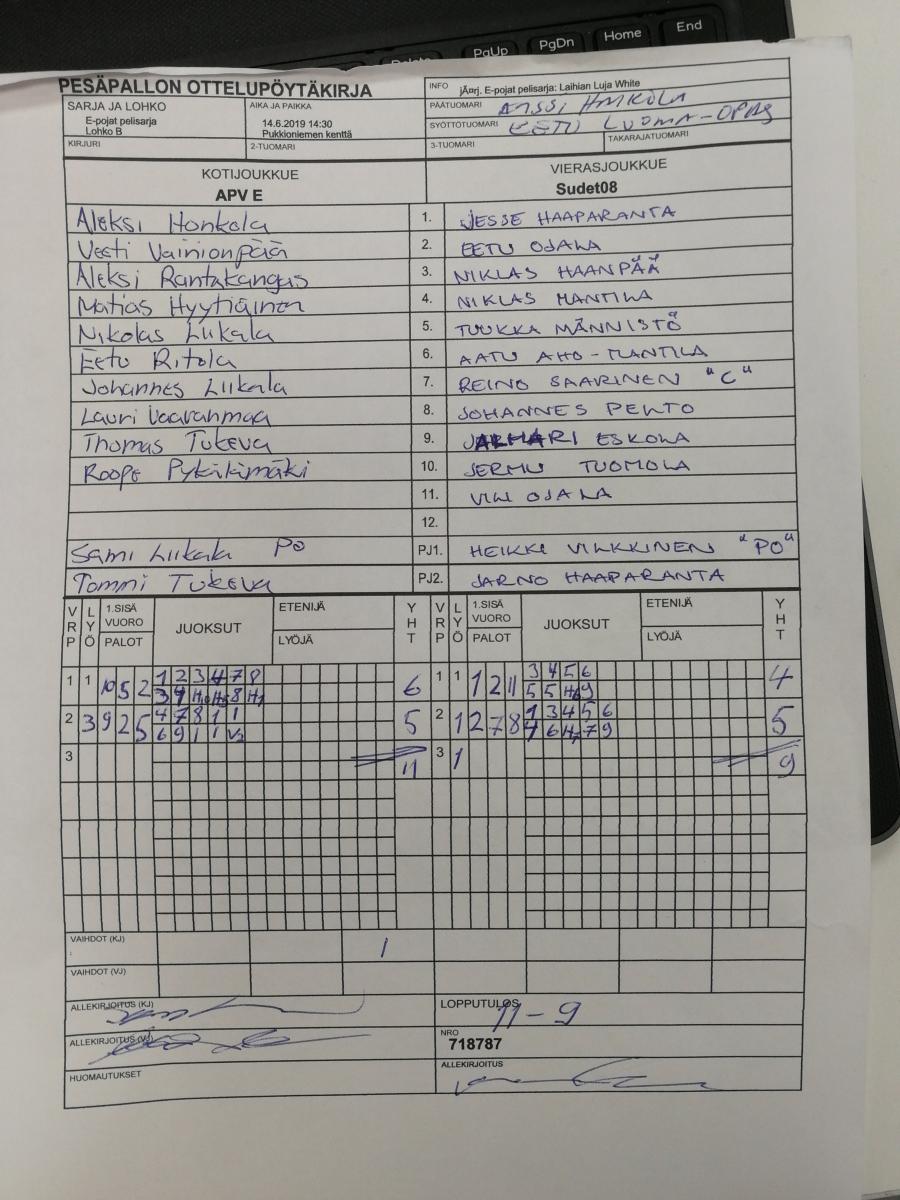 PgUp PgDn Home End
PESÄPALLON OTTELUPÖYTÄKIRJA
INFO jÃ¤rj. E-pojat pelisarja: Laihian Luja White
SARJA JA LOHKO
E-pojat pelisarja
Lohko B
AIKA JA PAIKKA
14.6.2019 14:30
Pukkioniemen kenttä
PÄÄTUOMARI
SYÖTTÖTUOMARI EETU LUOMA-OPAS
KIRJURI
2-TUOMARI
3-TUOMARI
TAKARAJATUOMARI
KOTIJOUKKUE
APV E
VIERASJOUKKUE
Sudet08
Aleksi Honkola 1. JESSE HAAPARANTA
Veeti Vainionpää 2. EETU OJALA
Aleksi Rantakangas 3. NIKLAS HAANPÄÄ
Matias Hyytiäinen 4. NIKLAS MANTILA
Nikolas Liikala 5. TUUKKA MÄNNISTÖ
Eetu Ritola 6. AATU AHO-MANTILA
Johannes Liikala 7. REINO SAARINEN "C"
Lauri Vaaranmaa 8. JOHANNES PELTO
Thomas Tukeva 9. JALMARI ESKOLA
Roope Pykäkimäki 10. JERMU TUOMOLA
11. VILI OJALA
12.
Sami Liikala PO PJ1. HEIKKI VILKKINEN "PO"
Tommi Tukeva PJ2. JARNO HAAPARANTA
VRP LYÖ 1.SISÄ VUORO PALOT JUOKSUT ETENIJÄ LYÖJÄ YHT VRP LYÖ 1.SISÄ VUORO PALOT JUOKSUT ETENIJÄ LYÖJÄ YHT
1 1 10 5 2 1 2 3 4 7 8 6 1 1 1 2 11 3 4 5 6 4
5 5 9
2 3 9 2 5 4 7 8 1 1 5 2 1 2 7 8 1 3 4 5 6 5
6 9 1 1 4 6 7 9
3 11 3 1 9
VAIHDOT (KJ) 1
VAIHDOT (VJ)
ALLEKIRJOITUS (KJ)
LOPPUTULOS 11-9
ALLEKIRJOITUS (VJ)
NRO
718787
HUOMAUTUKSET
ALLEKIRJOITUS